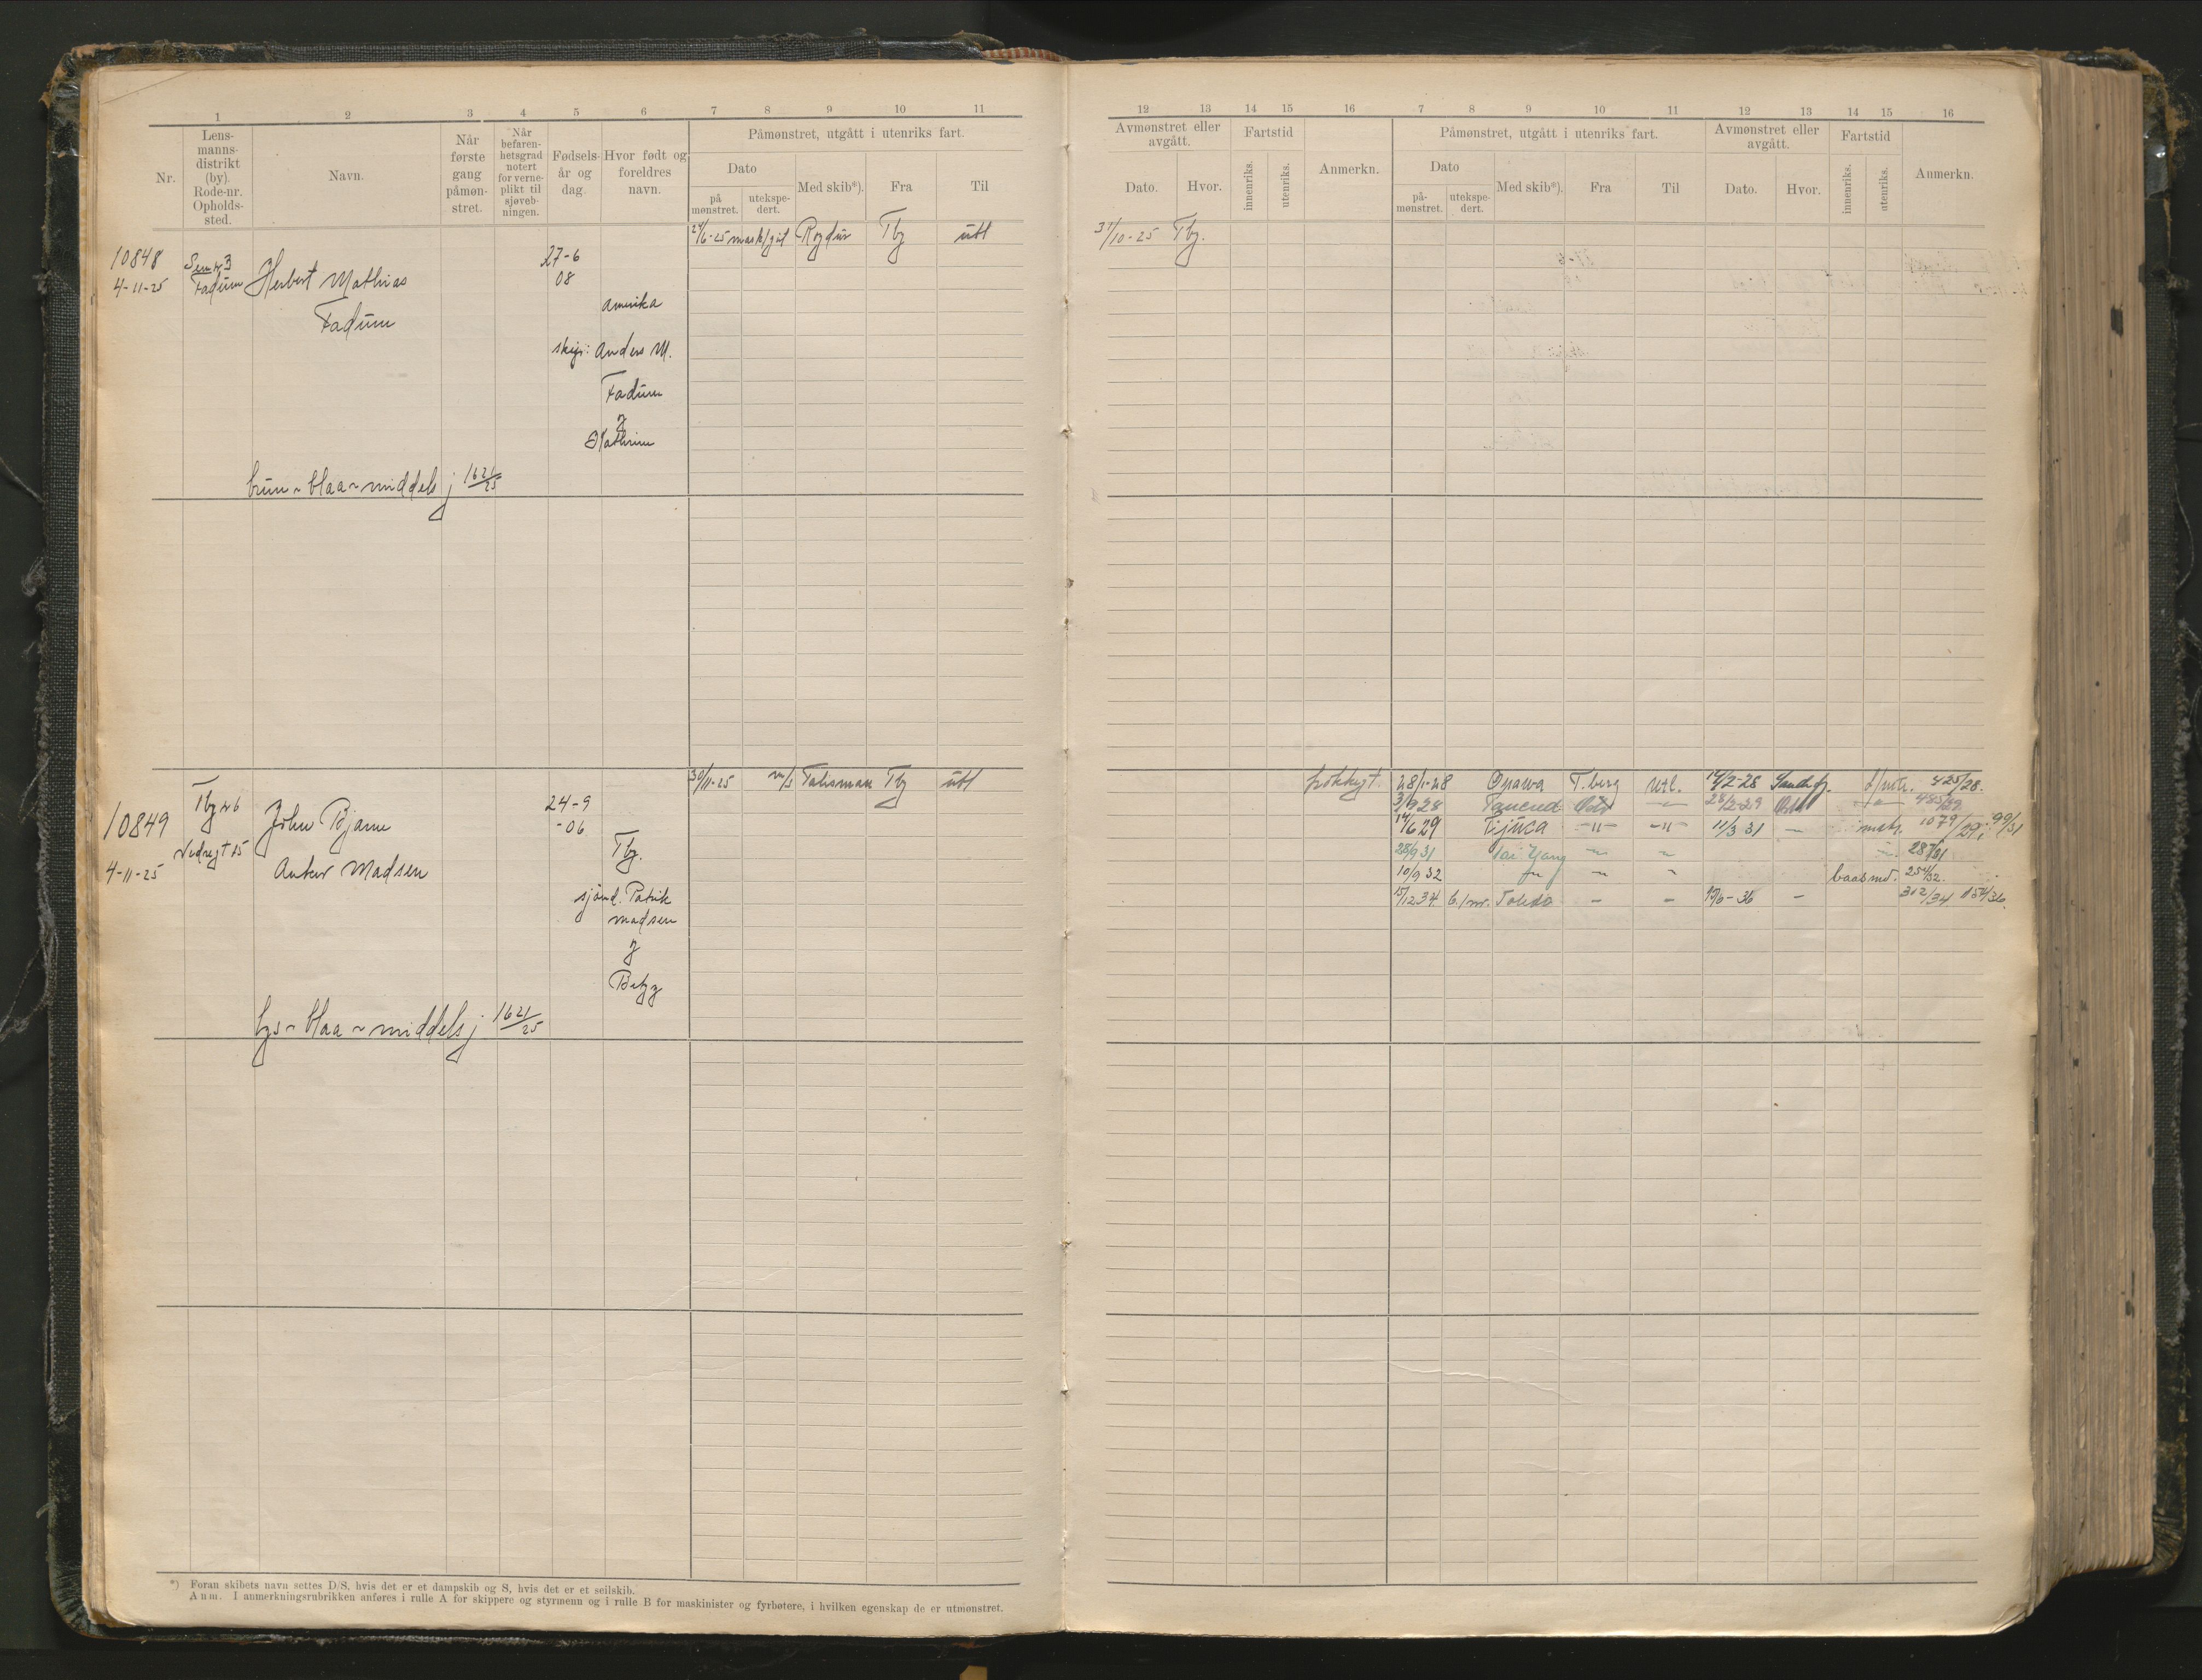 1 2 3 4 5 6 7 8 9 10 11
Nr.
Lens-
manns-
distrikt
(by).
Rode-nr.
Opholds-
sted.
Navn.
Når
første
gang
påmøn-
stret.
Når
befaren-
hetsgrad
notert
for verne-
plikt til
sjøveb-
ningen.
Fødsels-
år og
dag.
Hvor født og
foreldres
navn.
Påmønstret, utgått i utenriks fart.
Dato
på
mønstret.
utekspe-
dert.
Med skib*).
Fra
Til
Tbg utl
10848
4-11-25
Fadum
Herbert Mathias
Fadum
27-6
08
Amerika
Anders M.
Fadum
brun - blaa - middels j 1621/25
30/11-25 m/s Talisman Tbg utl
10849
4-11-25
Tbg
John Bjarne
Madsen
24-9
-06
Tbg.
Patrik
Madsen
lys - blaa - middels j 1621/25
*) Foran skibets navn settes D/S, hvis det er et dampskib og S, hvis det er et seilskib.
Anm. I anmerkningsrubrikken anføres i rulle A for skippere og styrmenn og i rulle B for maskinister og fyrbøtere, i hvilken egenskap de er utmønstret.
12 13 14 15 16 7 8 9 10 11 12 13 14 15 16
Avmønstret eller
avgått.
Dato.
Hvor.
Fartstid
innenriks.
utenriks.
Anmerkn.
Påmønstret, utgått i utenriks fart.
Dato
på-
mønstret.
utekspe-
dert.
Med skib*).
Fra
Til
Avmønstret eller
avgått.
Dato.
Hvor.
Fartstid
innenriks.
utenriks.
Anmerkn.
31/10-25 Tbg.
28/1-28 Opawa T.berg utl. 14/2-28 425/28.
Tancred Oslo
14/6 29 Tijuca -"- -"- 11/3 31 - 1079/29; 99/31
28/9 31 Tai Yang
10/9 32
15/12 34 Toledo - - -36 - 312/34